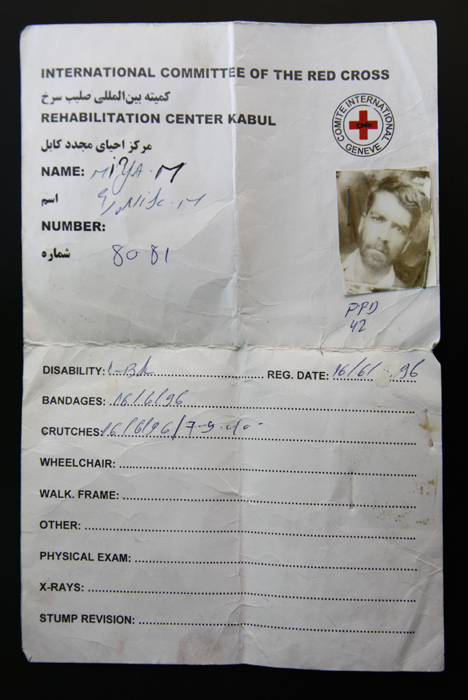 INTERNATIONAL COMMITTEE OF THE RED CROSS
کمیته بین‌المللی صلیب سرخ
REHABILITATION CENTER KABUL
COMITE INTERNATIONAL GENEVE
مرکز احیای مجدد کابل
NAME: MIYA. M
اسم
NUMBER:
شماره 8081
PPD
42
DISABILITY: REG. DATE: 16/6/ 96
BANDAGES: 16/6/96
CRUTCHES: 16/6/96/
WHEELCHAIR:
WALK. FRAME:
OTHER:
PHYSICAL EXAM:
X-RAYS:
STUMP REVISION: